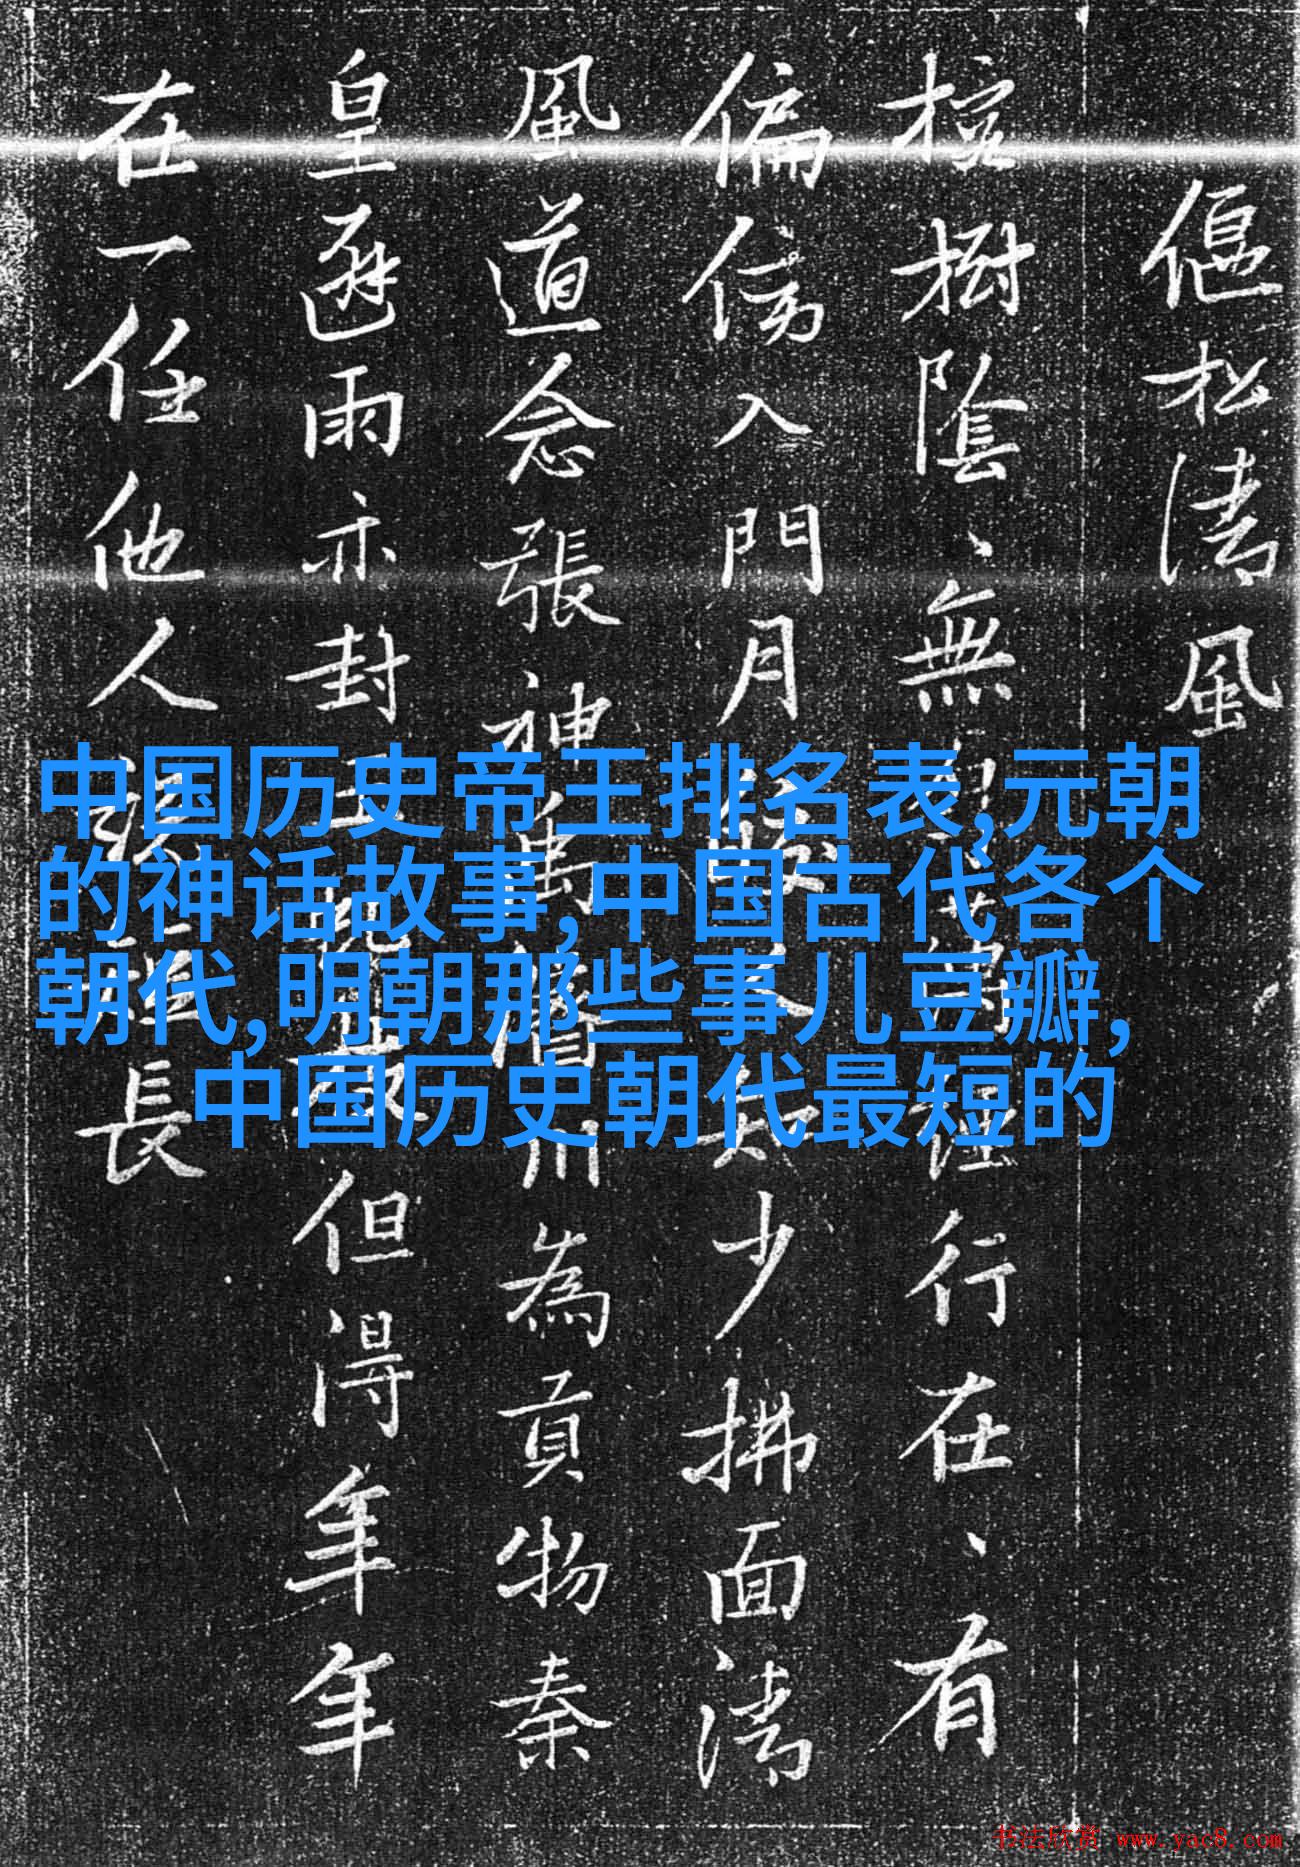 偃松清風
樹陰、無行在、有
偏傍入門月少拂面清
風道念張神為貢物秦
皇避雨亦封但得年年
在一任他人長
中国历史帝王排名表,元朝
的神话故事,中国古代各个
朝代,明朝那些事儿豆瓣,
中国历史朝代最短的
书法欣赏 www.yac8.com